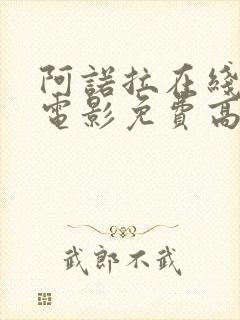 阿諾拉在綫
電影免費高
武郎不武